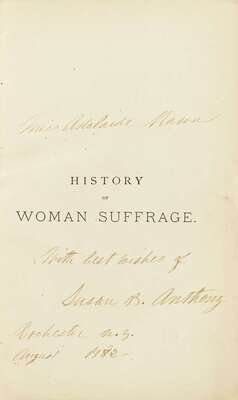 Miss Adelaide
HISTORY
OF
WOMAN SUFFRAGE.
With best wishes of
Susan B. Anthony
Rochester N.Y.
August 1882 -